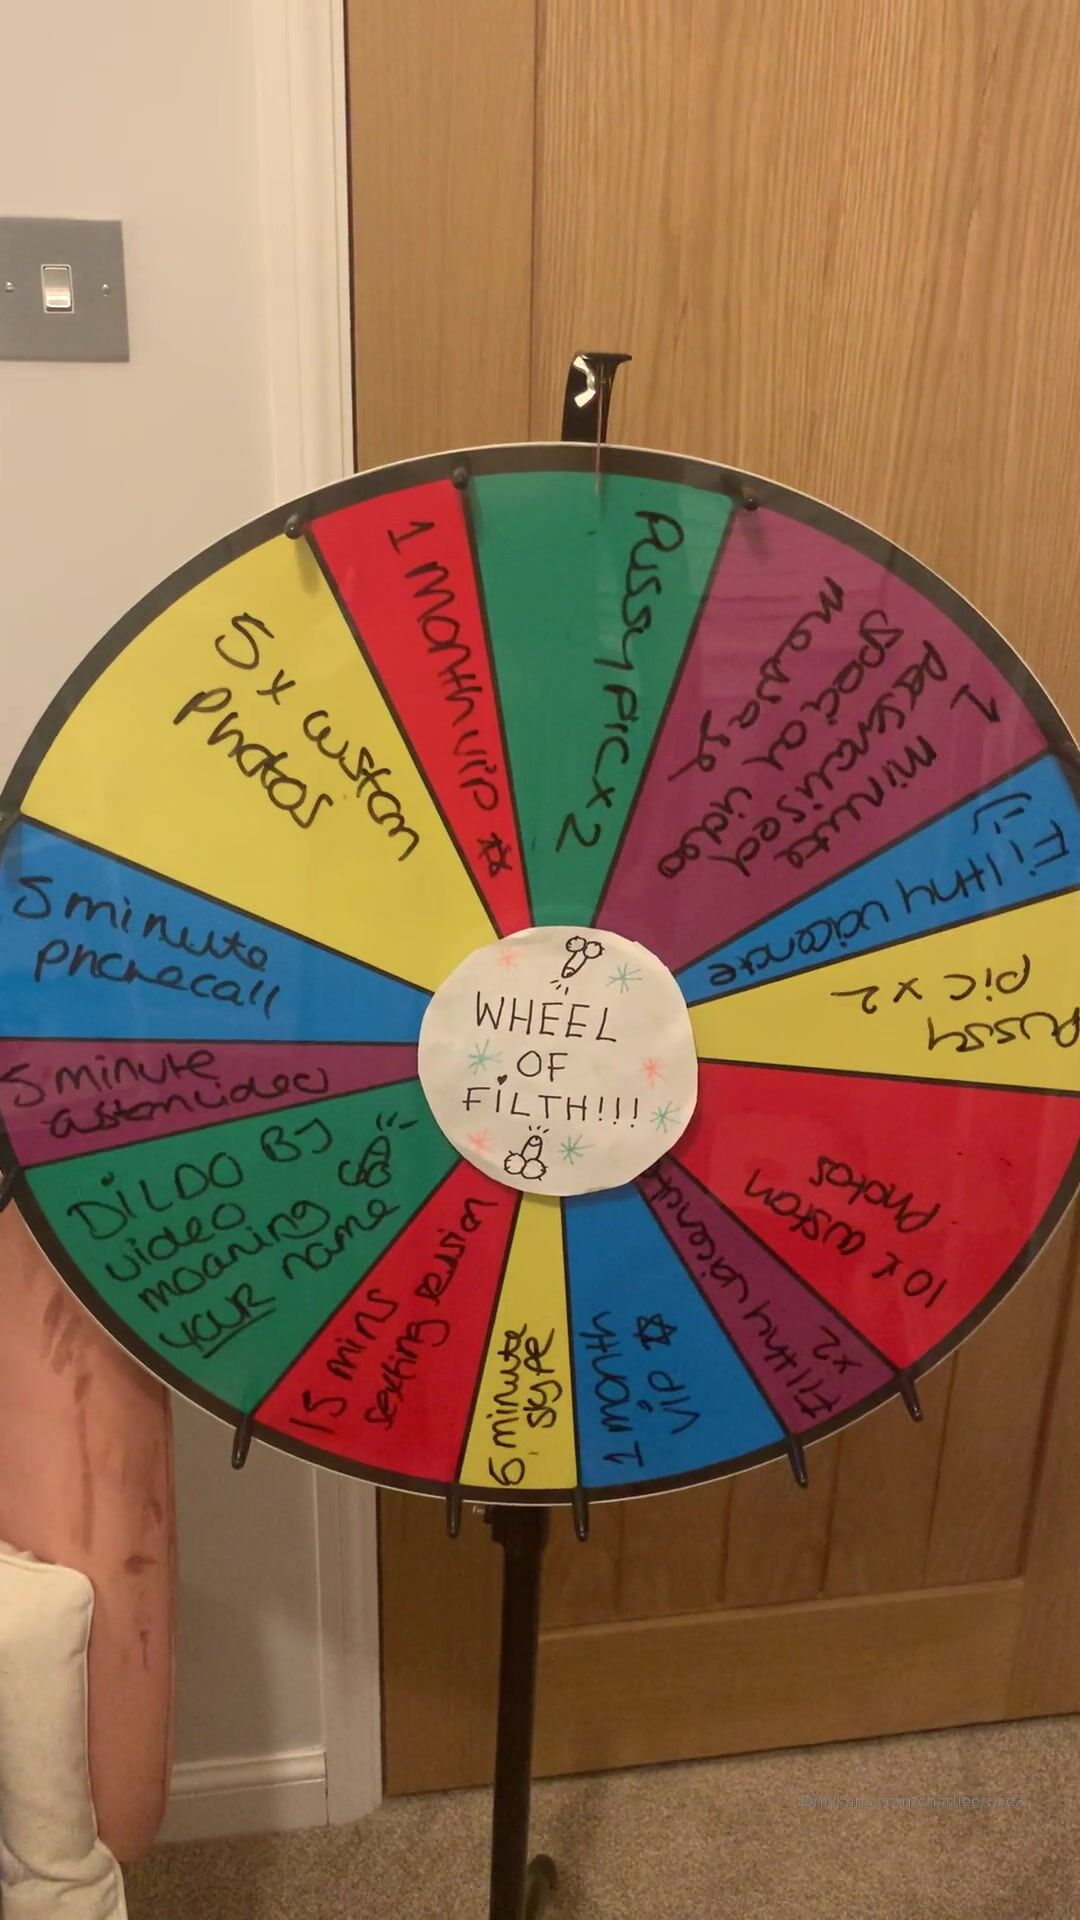 WHEEL
OF
FILTH!!!
Pussy pic x 2
1 minute
personalised
special
message video
Filthy voicenote
Pussy
pic x 2
10 x custom
photos
Filthy voicenote
x2
1 month
VIP
5 minute
skype
15 mins
sexting session
DILDO BJ
video
moaning
YOUR name
5 minute
custom video
5 minute
phonecall
5 x custom
photos
1 Month VIP
OnlyFans.com/charlieerose3